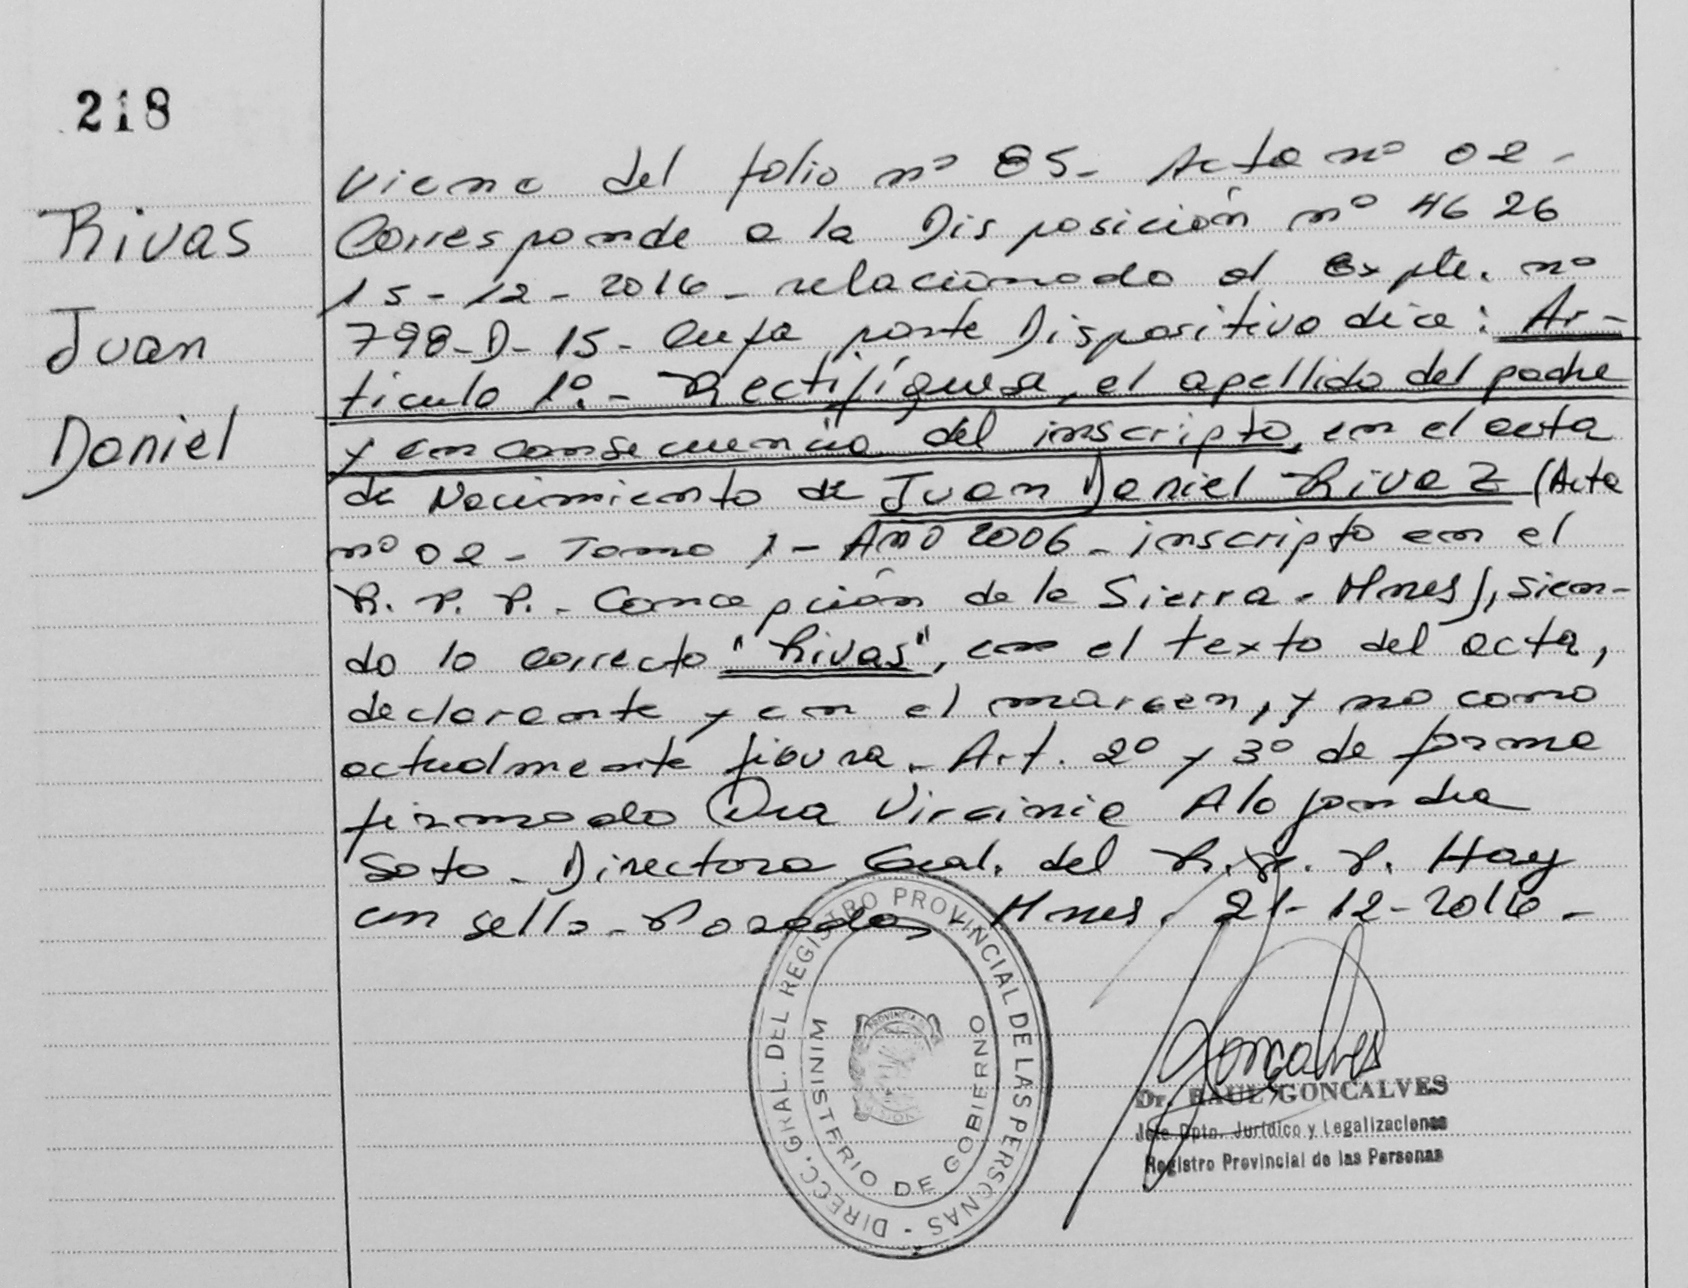 218
Rivas
Juan
Daniel
Viene del folio nº 85- Acta nº 02-
Corresponde a la Disposición nº 4626
15-12-2016- relacionado al Expte. nº
798-D-15- Cuya parte Dispositiva dice: Ar-
ticulo 1º.- Rectifíquese, el apellido del padre
y en consecuencia del inscripto, en el acta
de Nacimiento de Juan Daniel Rivaz (Acta
nº 02- Tomo 1- Año 2006- inscripto en el
R. P. P.- Concepción de la Sierra. Mnes), sien-
do lo correcto "Rivas", en el texto del acta,
declarante y en el margen, y no como
actualmente figura. Art. 2º y 3º de forma
firmado Dra Virginia Alejandra
Soto- Directora Gral. del R. P. P. Hay
un sello- Posadas, Mnes. 21-12-2016-
DIRECC. GRAL. DEL REGISTRO PROVINCIAL DE LAS PERSONAS -
MINISTERIO DE GOBIERNO
Goncalves
Dr. RAUL GONCALVES
Jefe Dpto. Jurídico y Legalizaciones
Registro Provincial de las Personas